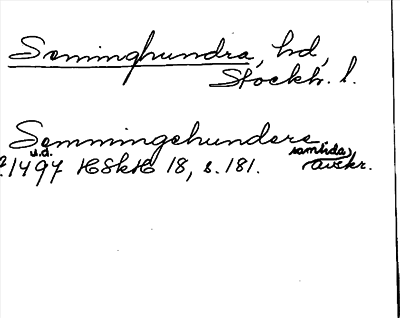 Seminghundra, hd,
Stockh. l.
Semmingehundere
u.d. samtida
1497 HSkH 18, s. 181. avskr.